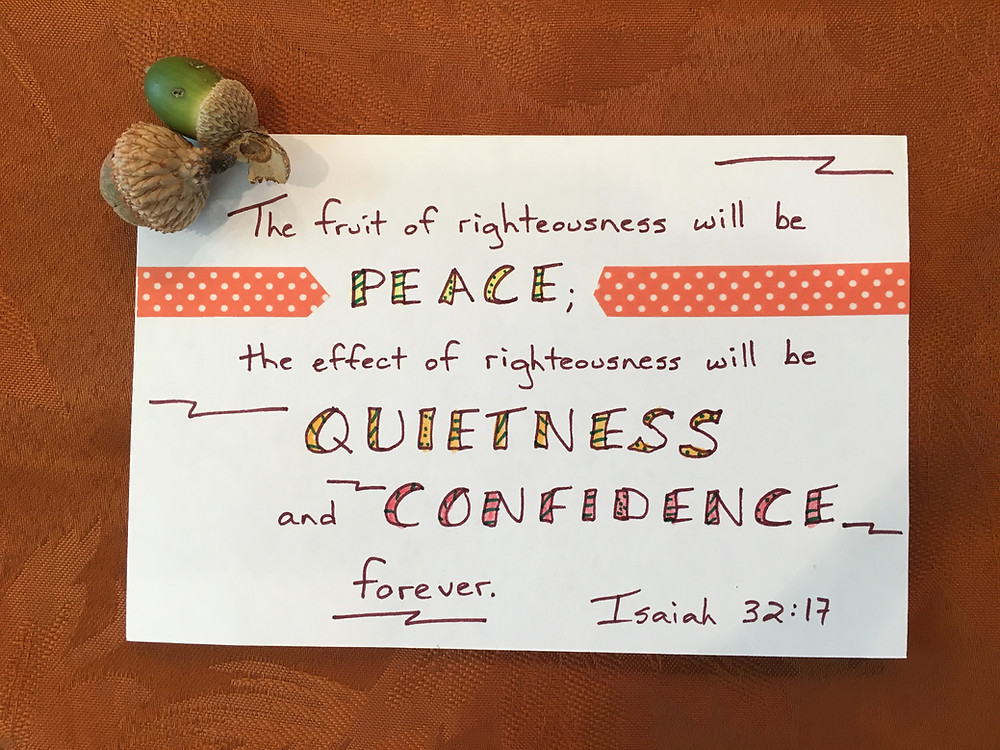 The fruit of righteousness will be
PEACE;
the effect of righteousness will be
QUIETNESS
and CONFIDENCE
forever.
Isaiah 32:17